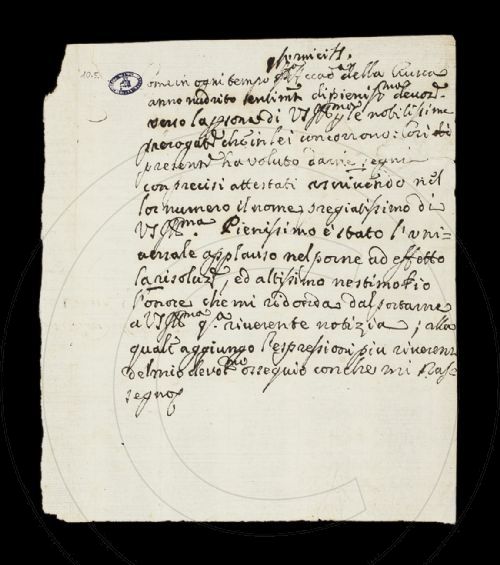 10.5.
ome in ogni tempo gl'Accad.ci della Crusca
anno nudrito sentim.ti di pieniss.ma devoz.e
verso la psona di VS Ill.ma p le nobilissime
prerogat.e che in lei concorrono: cosi di
presente ha voluto darne segni
con precisi attestati ascrivendo nel
lor numero il nome pregiatissimo di
VS Ill.ma. Pienissimo è stato l'uni=
versale applauso nel porne ad effetto
la risoluz.e, ed altissimo ne stimo io
l'onore che mi ridonda dal portarne
a VS Ill.ma q.a riverente notizia; alla
quale aggiungo l'espressioni più riverenti
del mio devot.mo ossequio con che mi ras=
segno